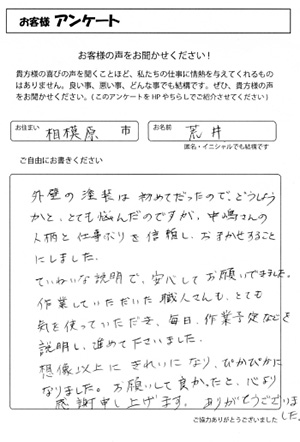 お客様 アンケート
お客様の声をお聞かせください！
貴方様の喜びの声を聞くことほど、私たちの仕事に情熱を与えてくれるもの
はありません。良い事、悪い事、どんな事でも結構です。ぜひ、貴方様の声
をお聞かせください。(このアンケートをHPやちらしでご紹介させてください)
お住まい 相模原 市 お名前 荒井
匿名・イニシャルでも結構です
ご自由にお書きください
外壁の塗装は初めてだったので、どうしよう
かと、とても悩んだのですが、中嶋さんの
人柄と仕事ぶりを信頼し、おまかせすること
にしました。
ていねいな説明で、安心してお願いできました。
作業していただいた職人さんも、とても
気を使っていただき、毎日、作業予定などを
説明し、進めて下さいました。
想像以上にきれいになり、ぴかぴかに
なりました。お願いして良かったと、心より
感謝申し上げます。ありがとうございました。
ご協力ありがとうございました